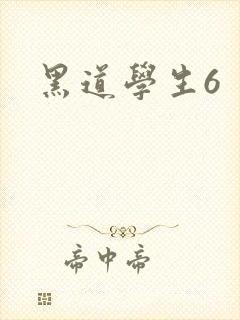 黑道學生6
帝中帝